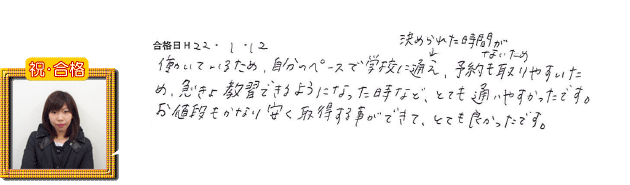 祝・合格
合格日 H22・1・12
決められた時間が
↓ ないため
働いているため、自分のペースで学校に通え、予約も取りやすいた
め、急きょ教習できるようになった時など、とても通いやすかったです。
お値段もかなり安く取得する事ができて、とても良かったです。